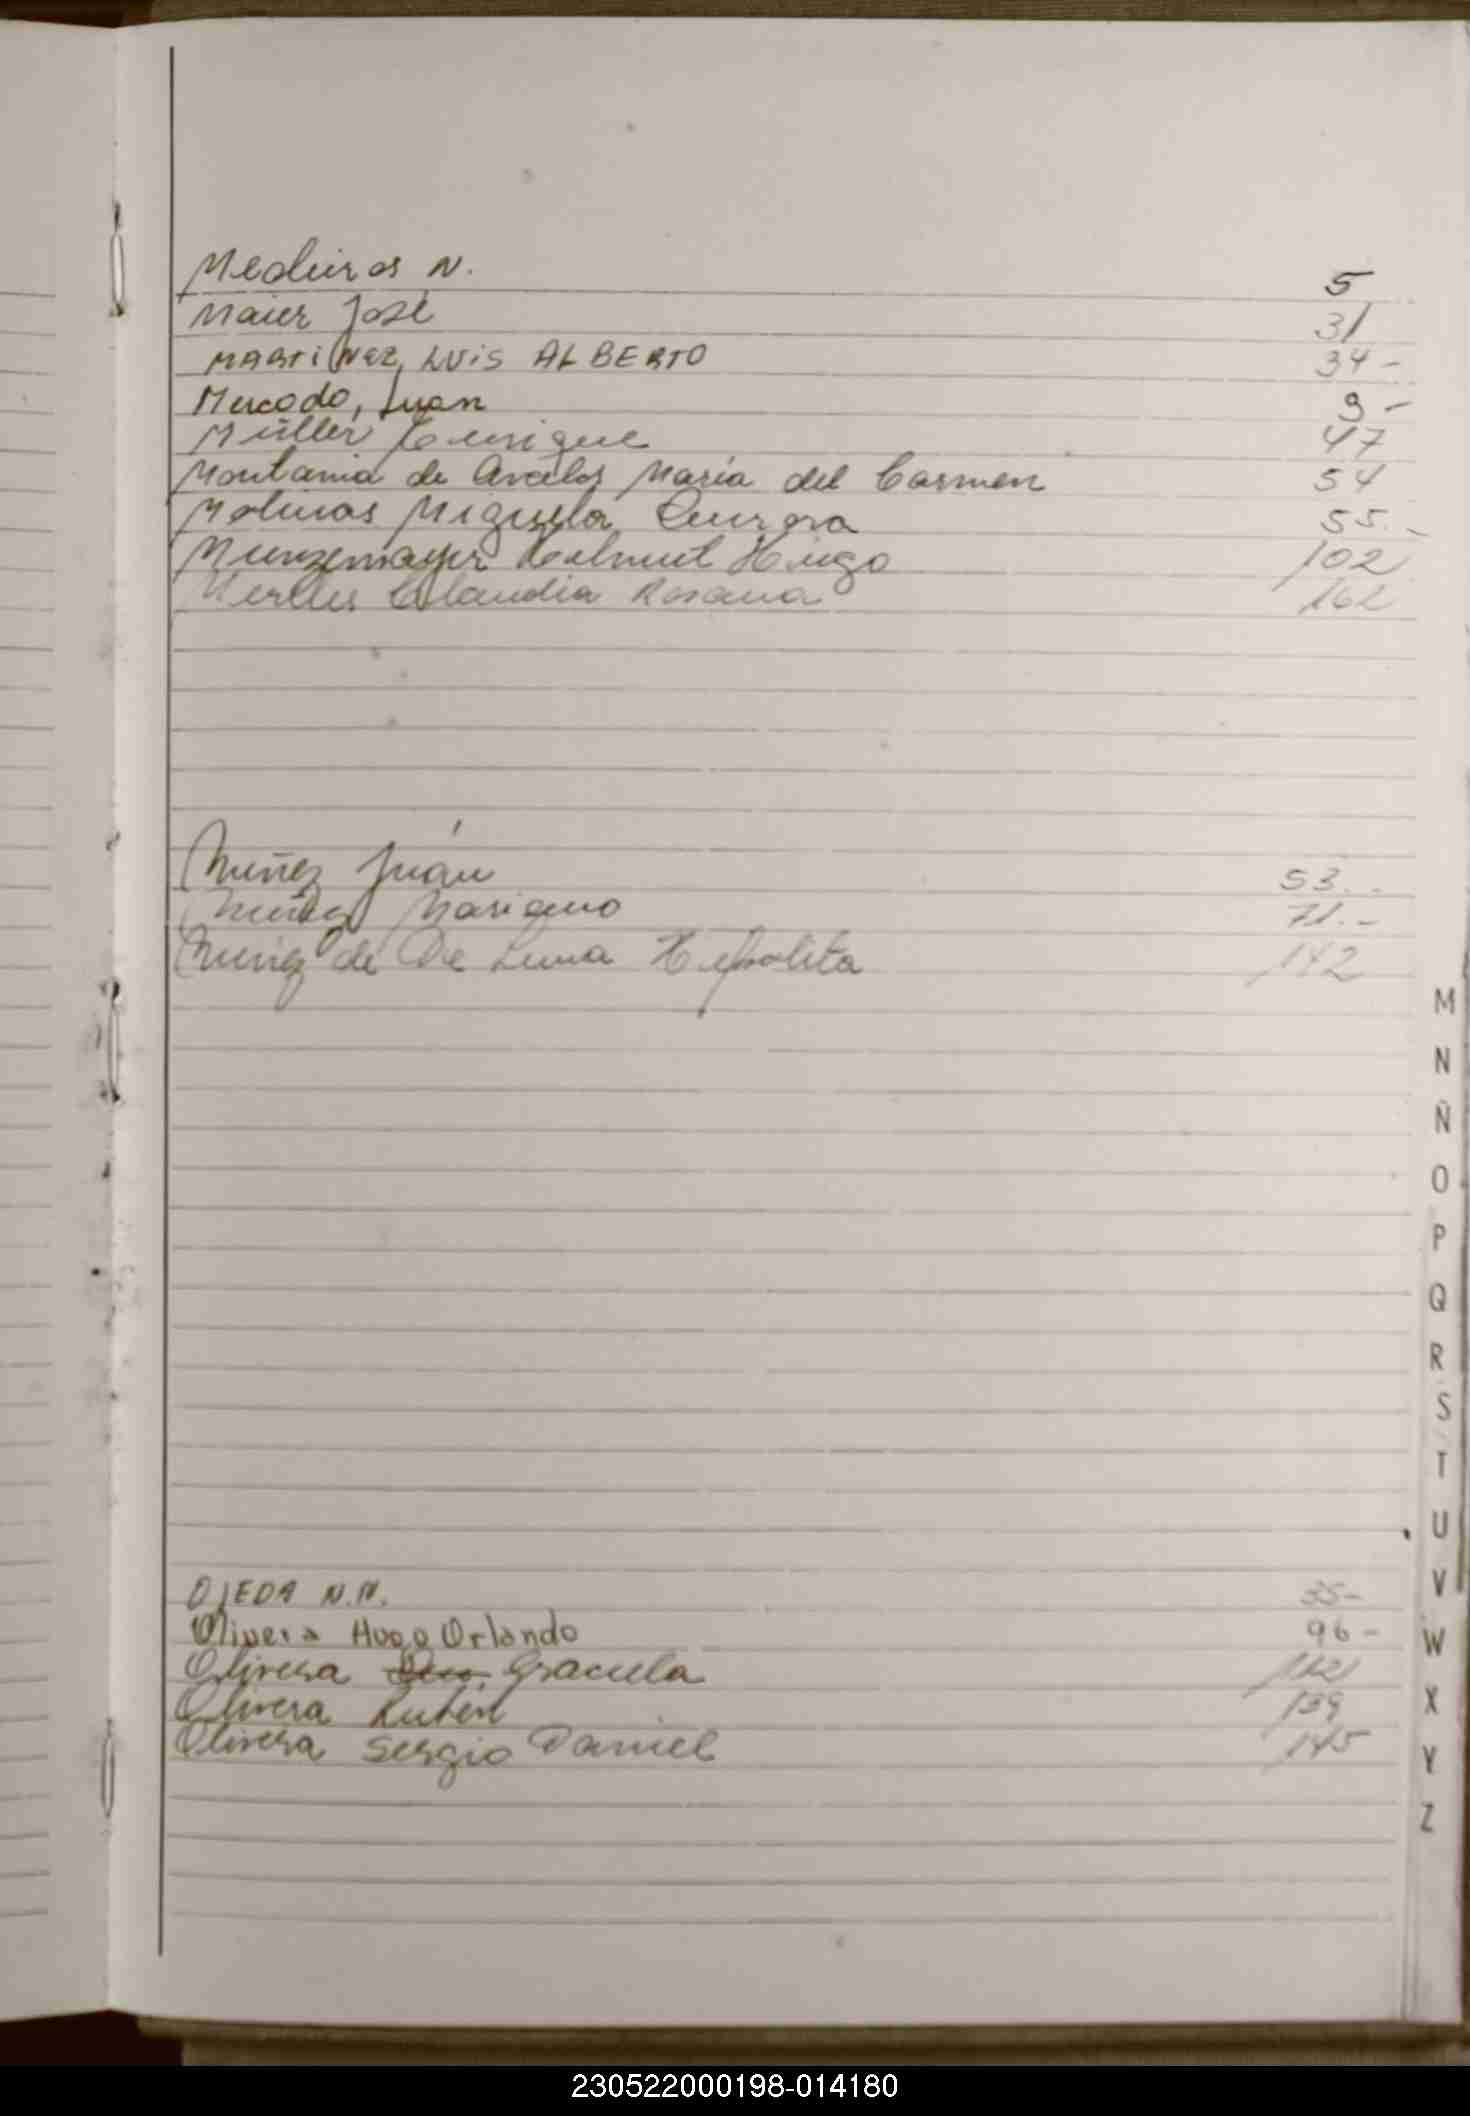 Medeiros N. 5
Maier José 31
MARTINEZ, LUIS ALBERTO 34-
Mercado, Juan 9-
Müller Enrique 47
Montania de Avalos María del Carmen 54
Molinas Miguela 55.-
Munzemayer Helmut Hugo 102
Claudia Rosana 162
Nuñez Juán 53.-
Nuñez Mariano 71.-
Nuñez de De Luna Hipolita 142
OJEDA N.N. 35-
Olivera Hugo Orlando 96-
Olivera Graciela 112
Olivera Rubén 139
Olivera Sergio Daniel 145
M
N
Ñ
O
P
Q
R
S
T
U
V
W
X
Y
Z
230522000198-014180